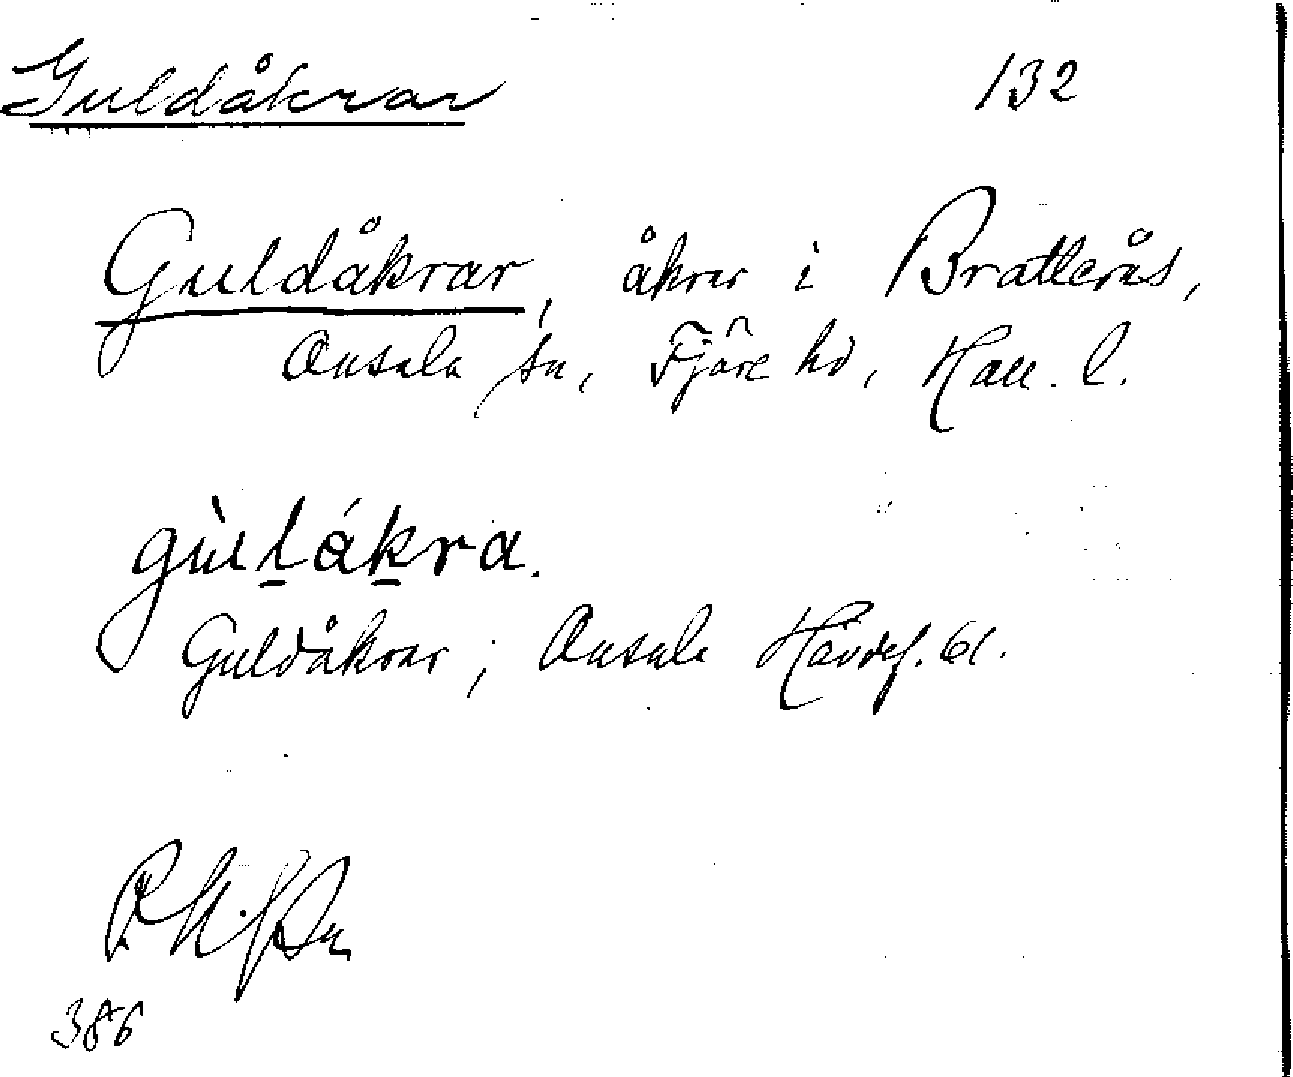 Guldåkrar 132
Guldåkrar, åkrar i Bratterås,
Onsala sn, Fjäre hd, Hall. l.
gùlɫákra.
Guldåkrar; Onsala Hävdef. 61.
386